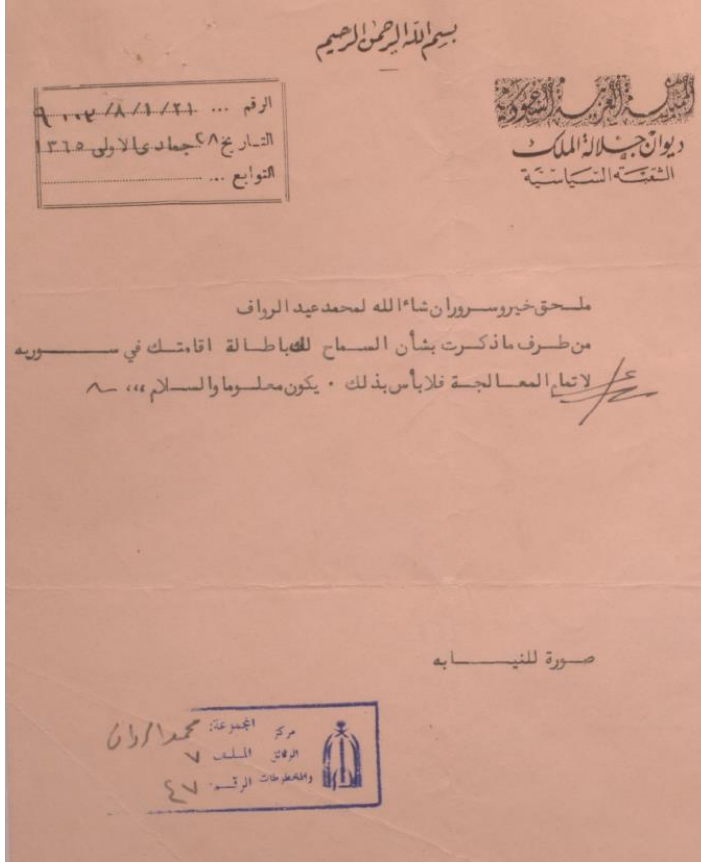 بسم الله الرحمن الرحيم
المملكة العربية السعودية
ديوان جلالة الملك
الشعبة السياسية
الرقم ... ٢١/١/٨/
التاريخ ٢٨ جمادى الاولى ١٣٦٥
التوابع ...
ملحق خير وسرور ان شاء الله لمحمد عيد الرواف
من طرف ما ذكرت بشأن السماح لك باطالة اقامتك في سوريه
لاتمام المعالجة فلا بأس بذلك . يكون معلوما والسلام ,,,
صورة للنيابه
مركز الوثائق والمخطوطات
المجموعة: محمد الرواف
الملف ٧
الرقم: ٤٧